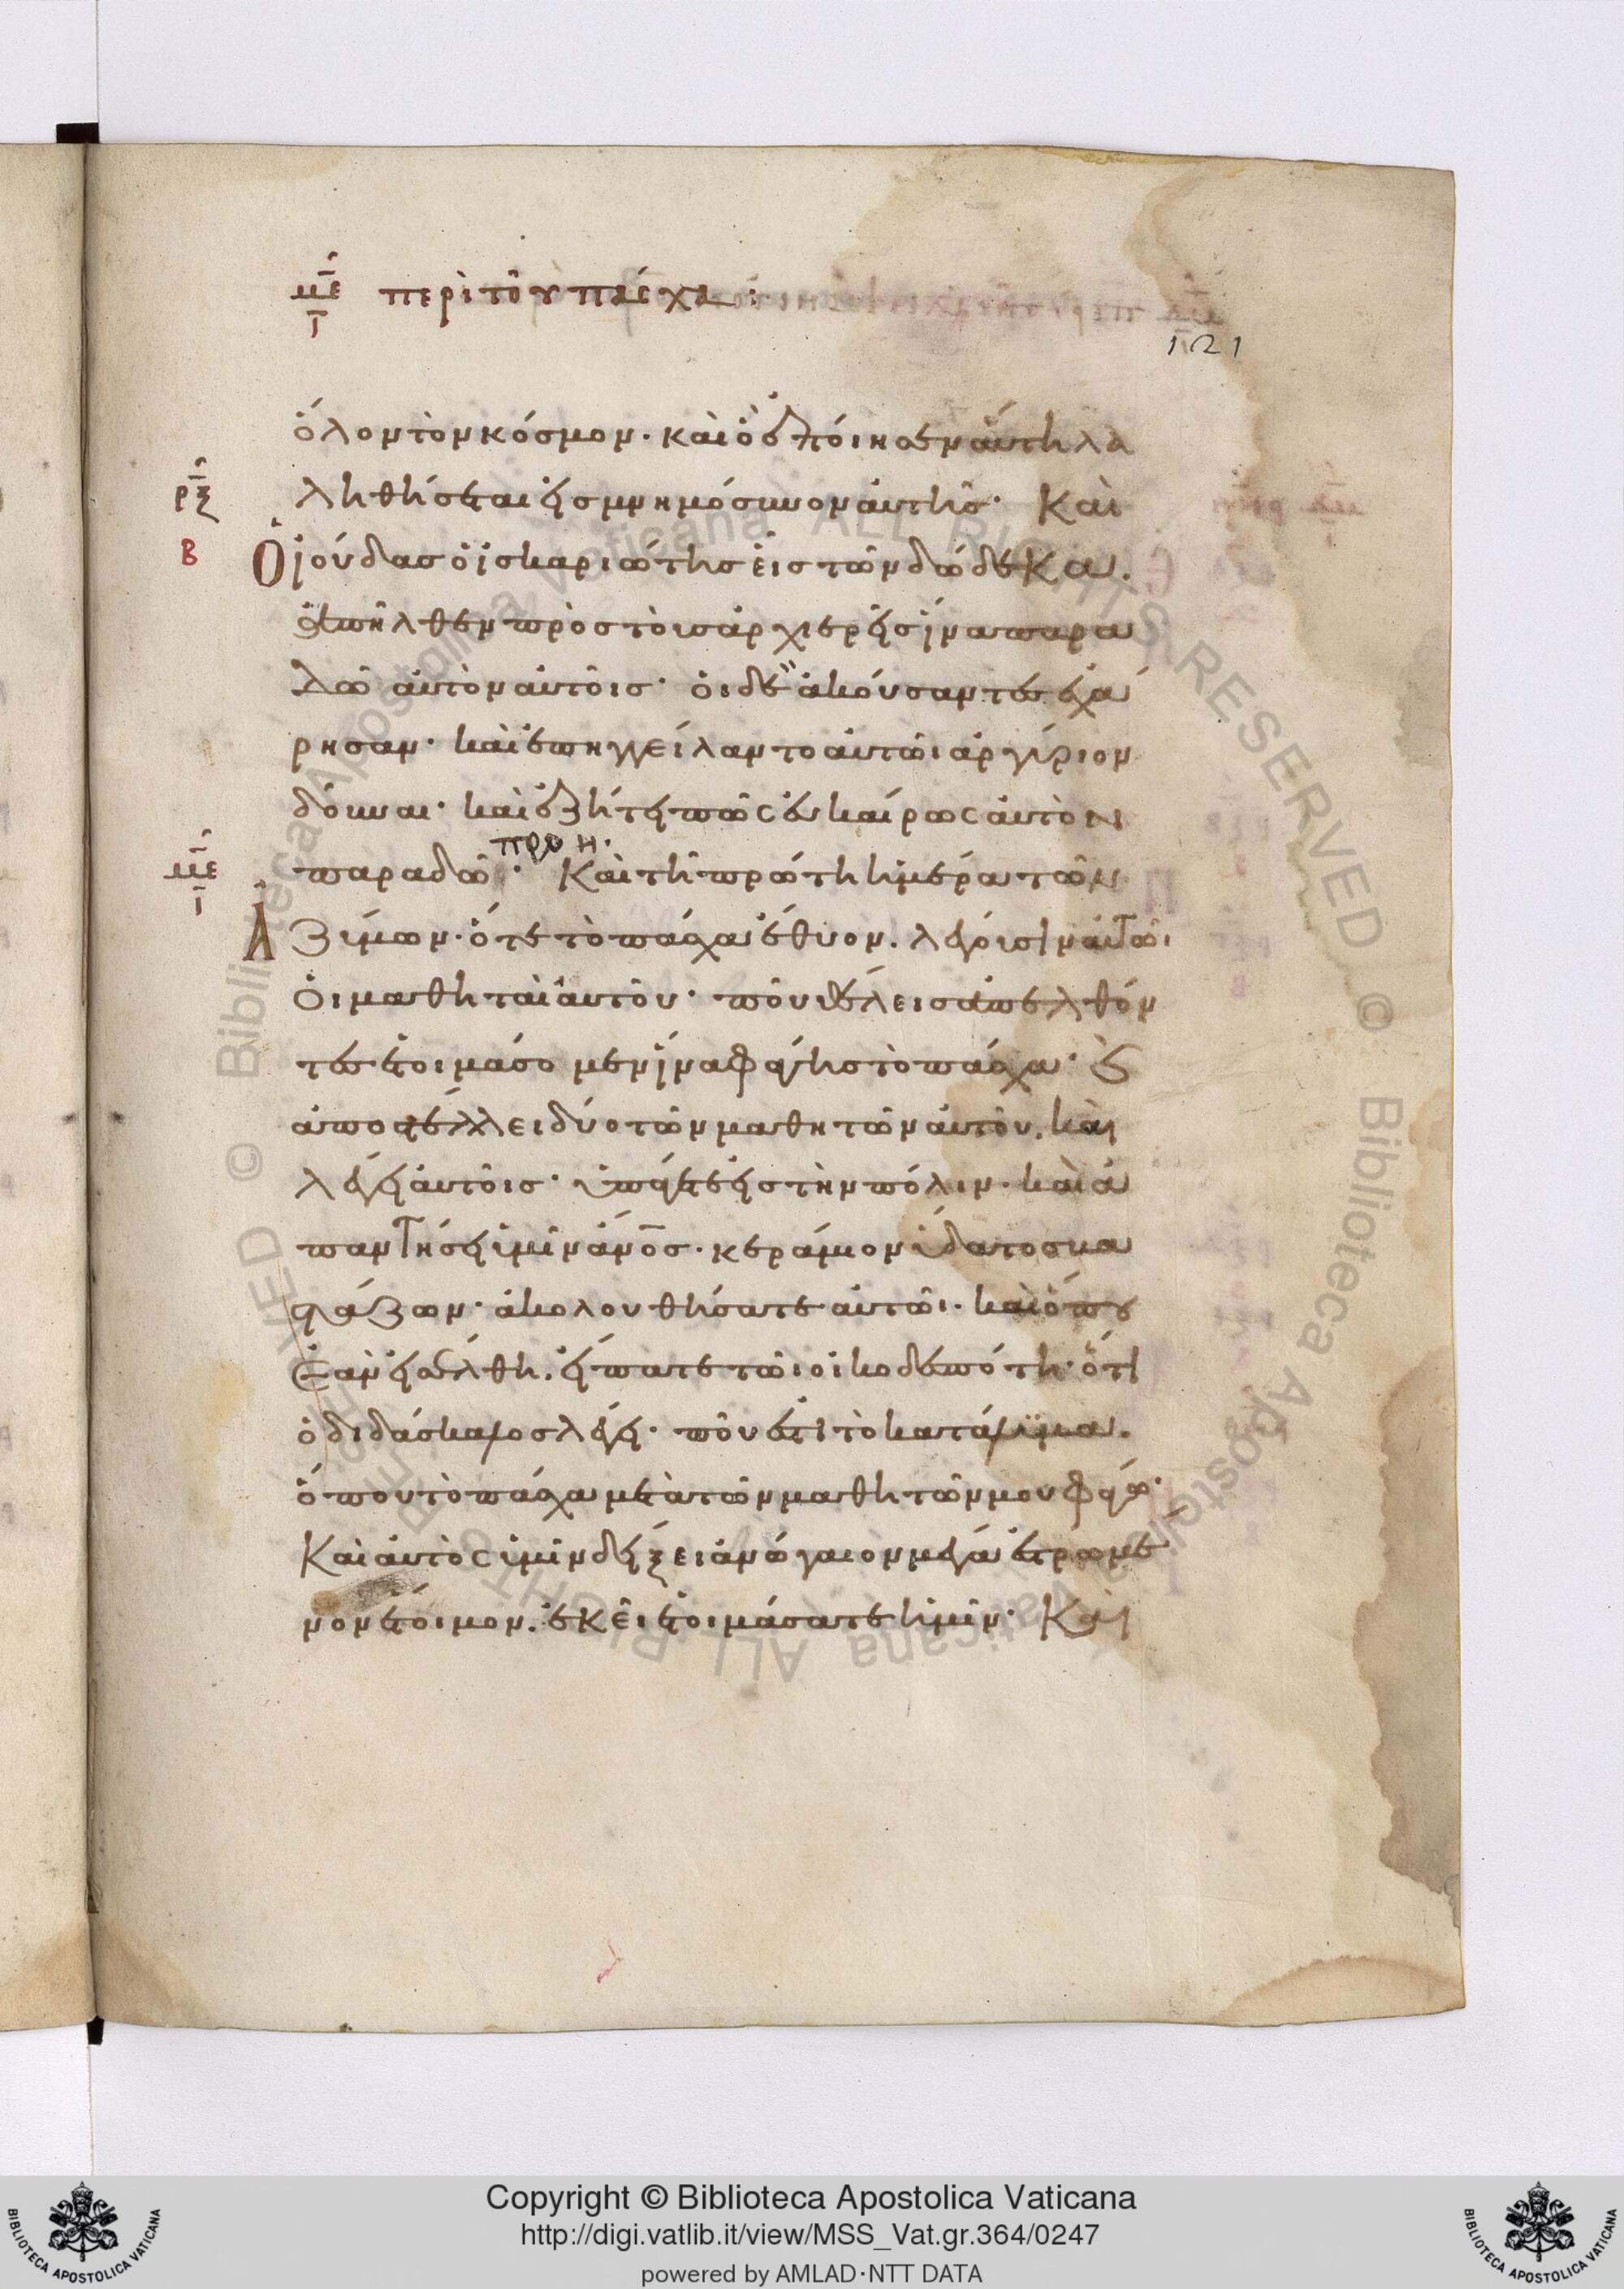 με περὶ τοῦ πάσχα:
121
ὅλον τὸν κόσμον· καὶ ὃ ἐποίησεν αὕτη λα
ρξ ληθήσεται εἰς μνημόσυνον αὐτῆς· Καὶ
β Ὁ ἰούδας ὁ ἰσκαριώτης εἷς τῶν δώδεκα.
ἀπῆλθεν πρὸς τοὺς ἀρχιερεῖς ἵνα παρα
δῶ αὐτὸν αὐτοῖς· οἱ δὲ ἀκούσαντες ἐχά
ρησαν· καὶ ἐπηγγείλαντο αὐτῶι ἀργύριον
δοῦναι· καὶ ἐζήτει πῶς εὐκαίρως αὐτὸν
με παραδῶ· Καὶ τῇ πρώτῃ ἡμέρα τῶν
Ἀζύμων· ὅτε τὸ πάσχα ἔθυον. λέγουσιν αὐτῶι
οἱ μαθηταὶ αὐτοῦ· ποῦ θέλεις ἀπελθόν
τες ἑτοιμάσομεν ἵνα φάγῃς τὸ πάσχα· καὶ
ἀποστέλλει δύο τῶν μαθητῶν αὐτοῦ. καὶ
λέγει αὐτοῖς· ὑπάγετε εἰς τὴν πόλιν· καὶ ἀ
παντήσει ὑμῖν ἄνος· κεράμιον ὕδατος βα
στάζων· ἀκολουθήσατε αὐτῶι· καὶ ὅπου
ἐὰν εἰσέλθη. εἴπατε τῶι οἰκοδεσπότη· ὅτι
ὁ διδάσκαλος λέγει· ποῦ ἐστὶ τὸ κατάλυμα.
ὅπου τὸ πάσχα μετὰ τῶν μαθητῶν μου φάγω·
Καὶ αὐτὸς ὑμῖν δείξει ἀνώγαιον μέγα ἐστρωμέ
νον ἕτοιμον. ἐκεῖ ἑτοιμάσατε ἡμῖν· Καὶ
Copyright © Biblioteca Apostolica Vaticana
http://digi.vatlib.it/view/MSS_Vat.gr.364/0247
powered by AMLAD·NTT DATA